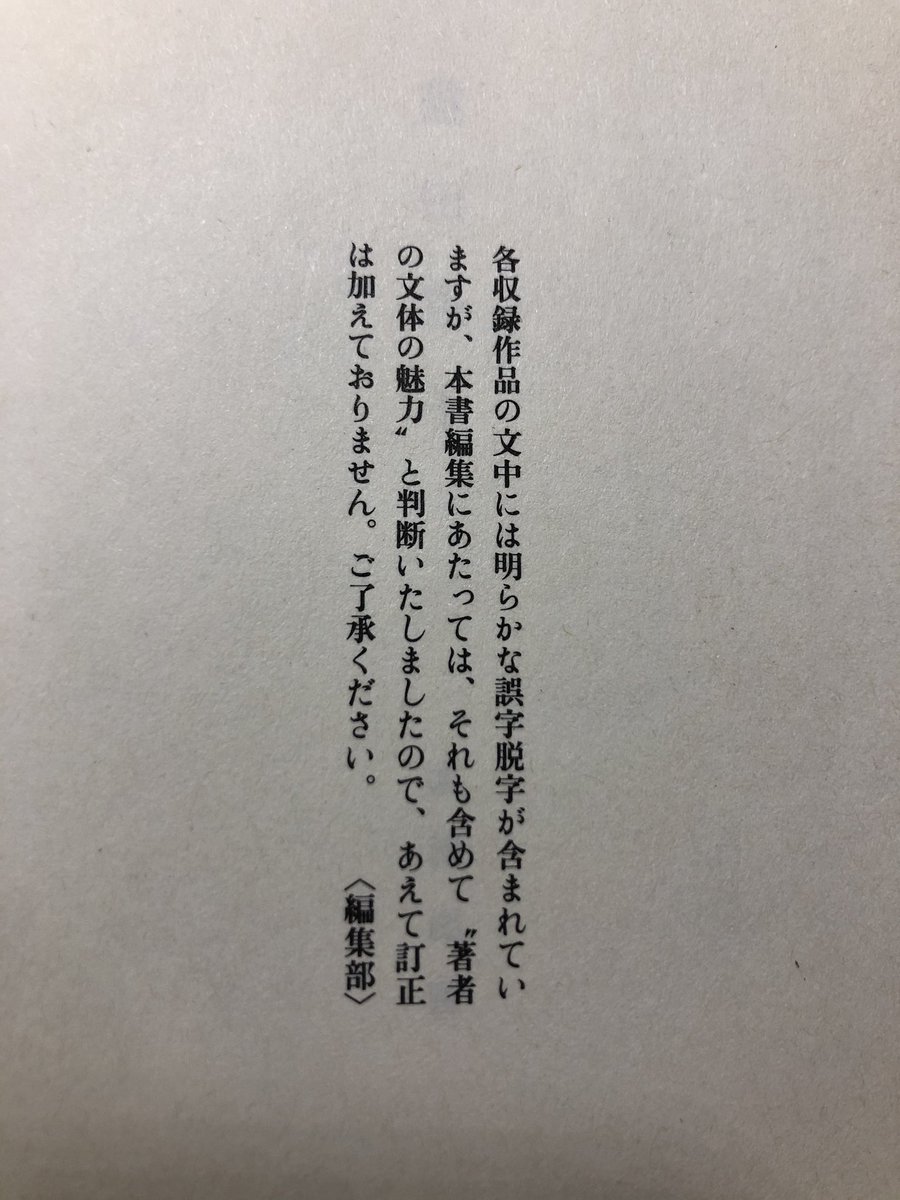 各収録作品の文中には明らかな誤字脱字が含まれてい
ますが、本書編集にあたっては、それも含めて〝著者
の文体の魅力〟と判断いたしましたので、あえて訂正
は加えておりません。ご了承ください。　〈編集部〉